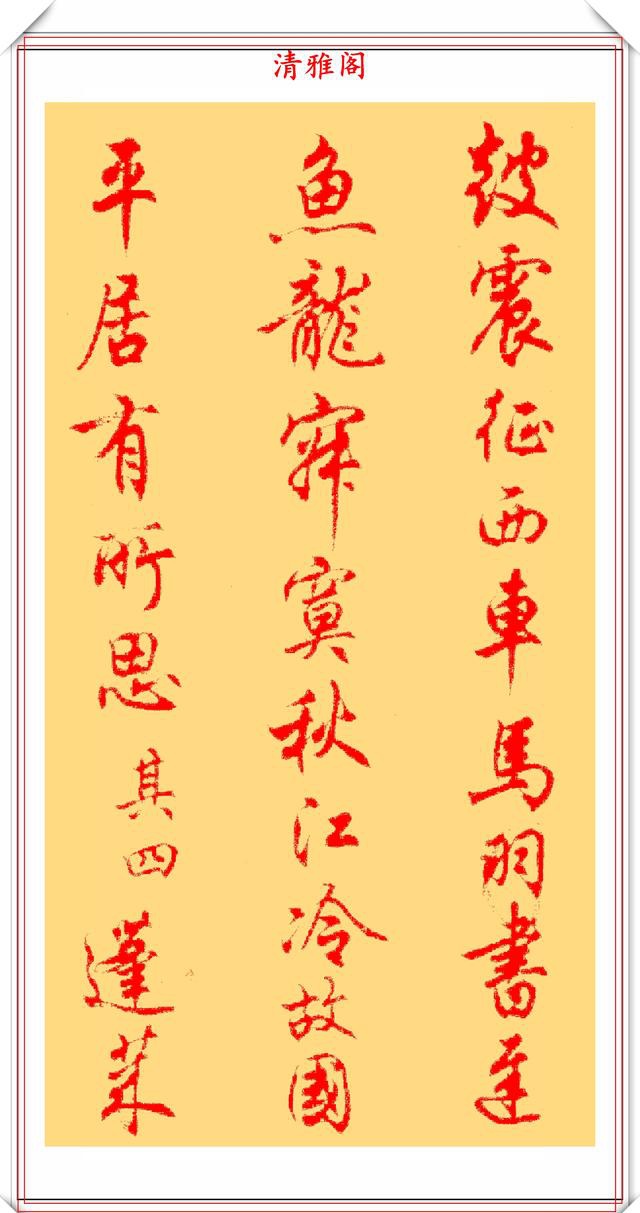 清雅阁
鼓震征西車馬羽書遲
魚龍寂寞秋江冷故國
平居有所思其四蓬萊